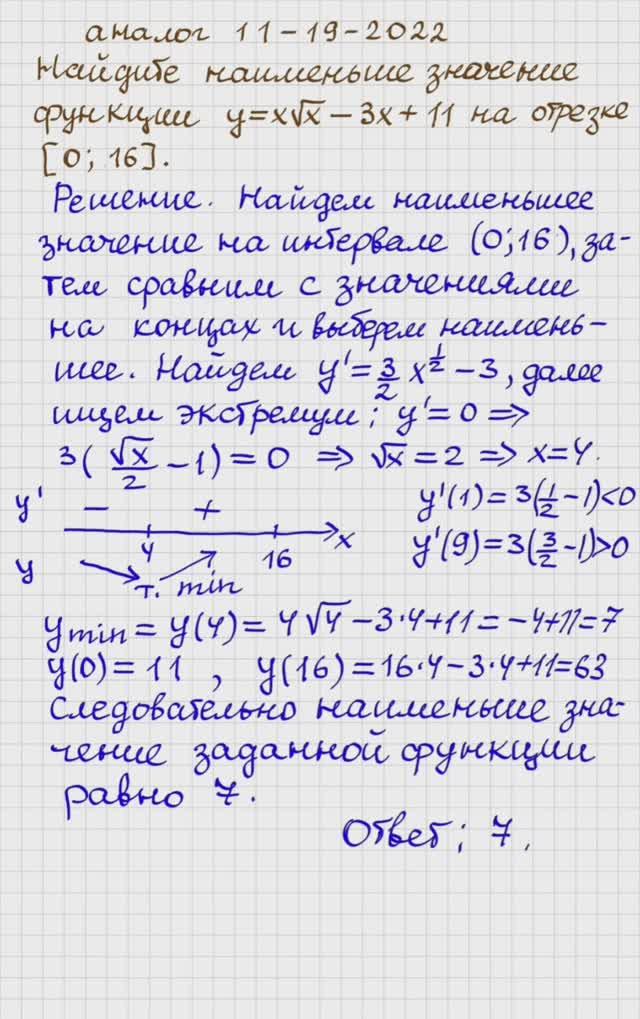 аналог 11-19-2022
Найдите наименьше значение
функции y=x√x-3x+11 на отрезке
[0; 16].
Решение. Найдем наименьшее
значение на интервале (0;16), за-
тем сравним с значениями
на концах и выберем наимень-
шее. Найдем y'=3/2 x^(1/2) -3, далее
ищем экстремум; y'=0 ⇒
3(√x/2 -1)=0 ⇒ √x=2 ⇒ x=4.
y' - + y'(1)=3(1/2-1)<0
4 16 x y'(9)=3(3/2-1)>0
y т. min
y min = y(4)=4√4-3·4+11=-4+11=7
y(0)=11, y(16)=16·4-3·4+11=63
Следовательно наименьше зна-
чение заданной функции
равно 7.
Ответ; 7.